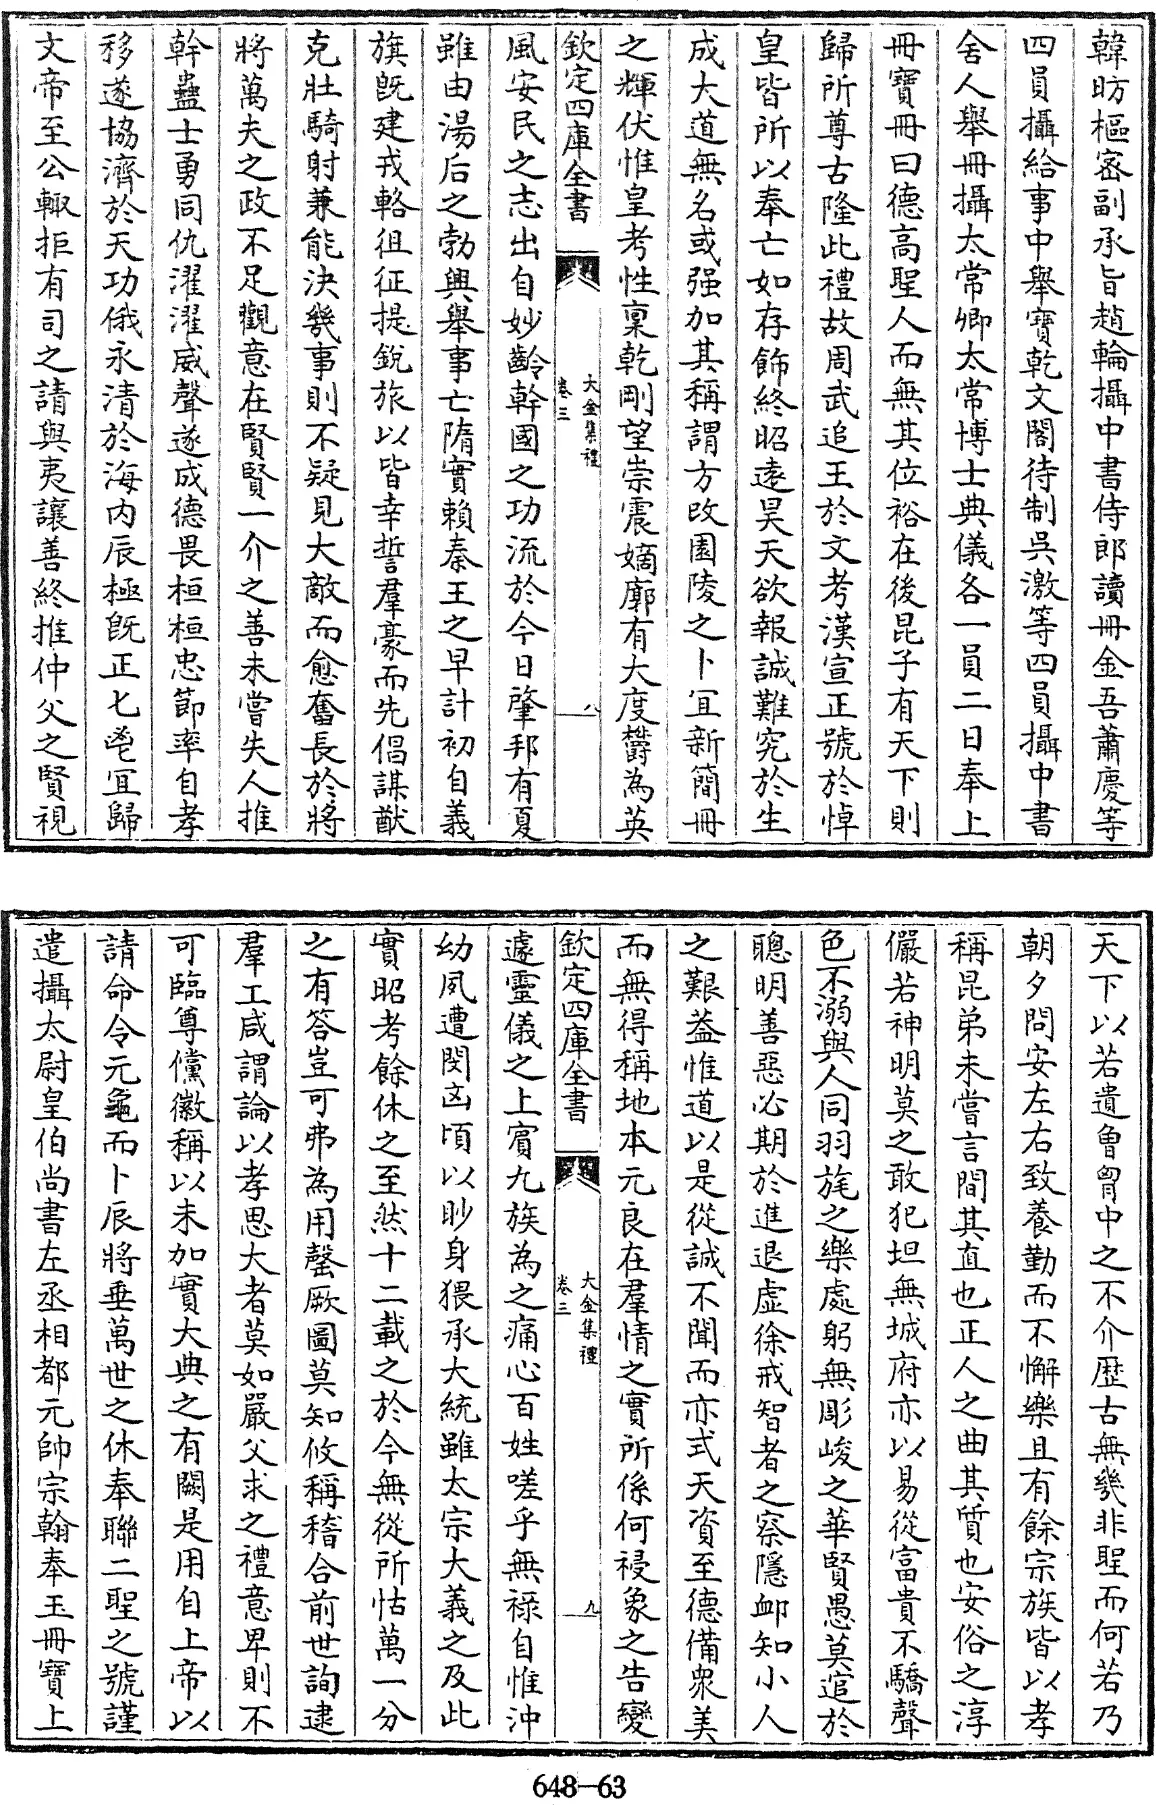 韓昉樞密副承旨趙輪攝中書侍郎讀冊金吾蕭慶等
四員攝給事中舉寳乾文閣待制吳激等四員攝中書
舍人舉冊攝太常卿太常博士典儀各一員二日奉上
冊寶冊曰德高聖人而無其位裕在後昆子有天下則
歸所尊古隆此禮故周武追王於文考漢宣正號於悼
皇皆所以奉亡如存飾終昭逺昊天欲報誠難究於生
成大道無名或强加其稱謂方改園陵之卜宜新簡冊
之輝伏惟皇考性稟乾剛望崇震嫡廓有大度欝為英
欽定四庫全書
大金集禮
卷三
八
風安民之志出自妙齡幹國之功流於今日肇邦有夏
雖由湯后之勃興舉事亡隋實賴秦王之早計初自義
旗既建戎輅徂征提銳旅以皆幸誓羣豪而先倡謀猷
克壯騎射兼能決幾事則不疑見大敵而愈奮長於將
將萬夫之政不足觀意在賢賢一介之善未嘗失人推
幹蠱士勇同仇濯濯威聲遂成德畏桓桓忠節率自孝
移遂協濟於天功俄永清於海内辰極既正七鬯宜歸
文帝至公輙拒有司之請與夷讓善終推仲父之賢視
天下以若遺曾胷中之不介歴古無幾非聖而何若乃
朝夕問安左右致養勤而不懈樂且有餘宗族皆以孝
稱昆弟未嘗言間其直也正人之曲其質也安俗之淳
儼若神明莫之敢犯坦無城府亦以易從富貴不驕聲
色不溺與人同羽旄之樂處躬無彫峻之華賢愚莫逭於
聰明善惡必期於進退虛徐戒智者之察隱卹知小人
之艱葢惟道以是從誠不聞而亦式天資至德備衆美
而無得稱地本元良在羣情之實所係何祲象之告變
欽定四庫全書
大金集禮
卷三
九
遽靈儀之上賓九族為之痛心百姓嗟乎無祿自惟沖
幼夙遭閔凶頃以眇身猥承大統雖太宗大義之及此
實昭考餘休之至然十二載之於今無從所怙萬一分
之有答豈可弗為用罄厥圖莫知攸稱稽合前世詢逮
羣工咸謂論以孝思大者莫如嚴父求之禮意卑則不
可臨尊儻徽稱以未加實大典之有闕是用自上帝以
請命令元龜而卜辰將垂萬世之休奉聯二聖之號謹
遣攝太尉皇伯尚書左丞相都元帥宗翰奉玉冊寶上
648-63